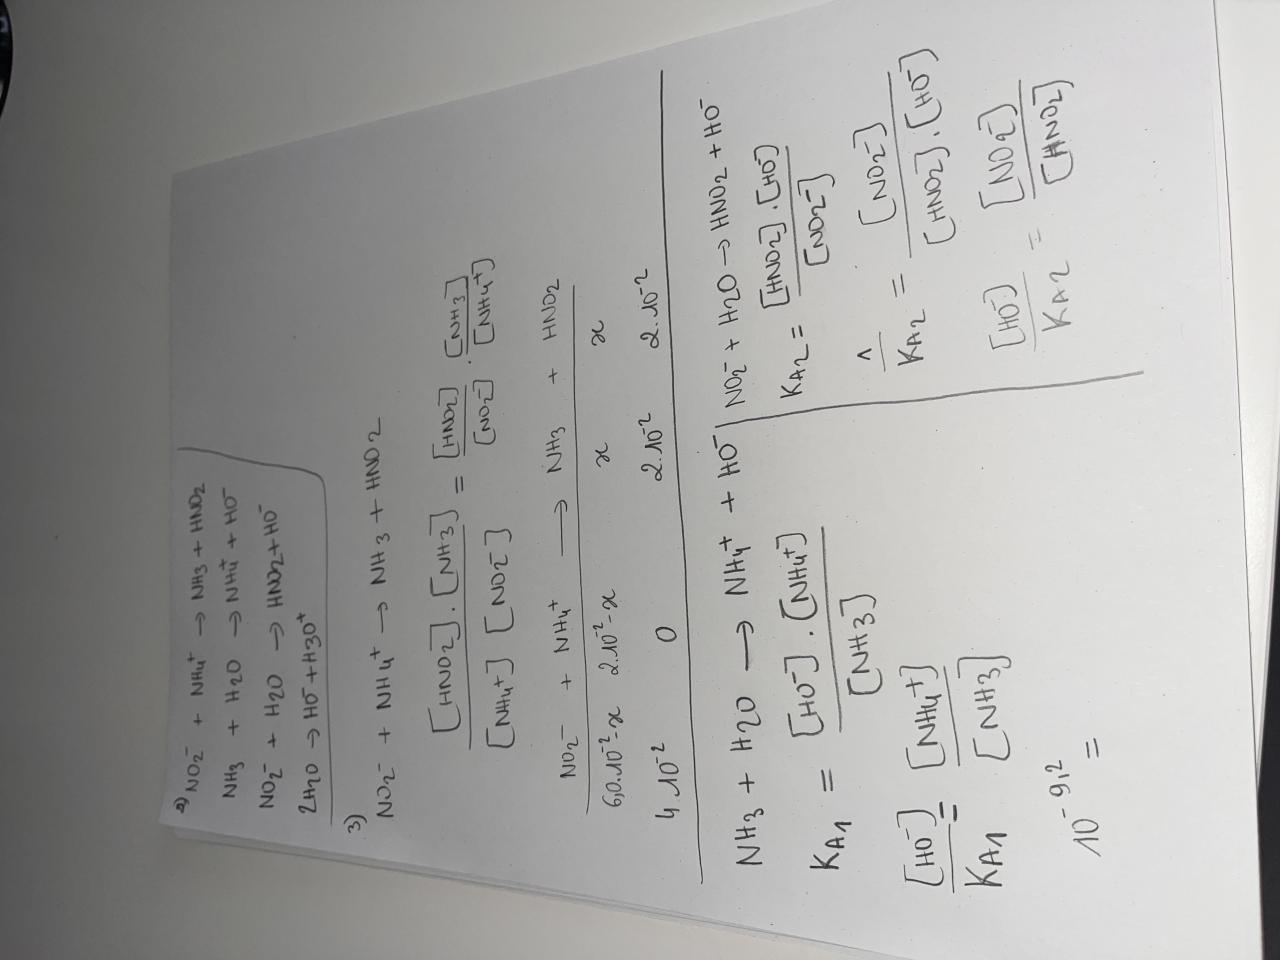 2) NO2⁻ + NH4⁺ → NH3 + HNO2
NH3 + H2O → NH4⁺ + HO⁻
NO2⁻ + H2O → HNO2 + HO⁻
2H2O → HO⁻ + H3O⁺
3)
NO2⁻ + NH4⁺ → NH3 + HNO2
[HNO2].[NH3] / [NH4⁺][NO2⁻] = [HNO2] / [NO2⁻] . [NH3] / [NH4⁺]
NO2⁻ + NH4⁺ → NH3 + HNO2
6,0.10⁻²-x 2.10⁻²-x x x
4.10⁻² 0 2.10⁻² 2.10⁻²
NH3 + H2O → NH4⁺ + HO⁻
KA1 = [HO⁻].[NH4⁺] / [NH3]
[HO⁻] / KA1 = [NH4⁺] / [NH3]
10⁻⁹,² =
NO2⁻ + H2O → HNO2 + HO⁻
KA2 = [HNO2].[HO⁻] / [NO2⁻]
1 / KA2 = [NO2⁻] / [HNO2].[HO⁻]
[HO⁻] / KA2 = [NO2⁻] / [HNO2]